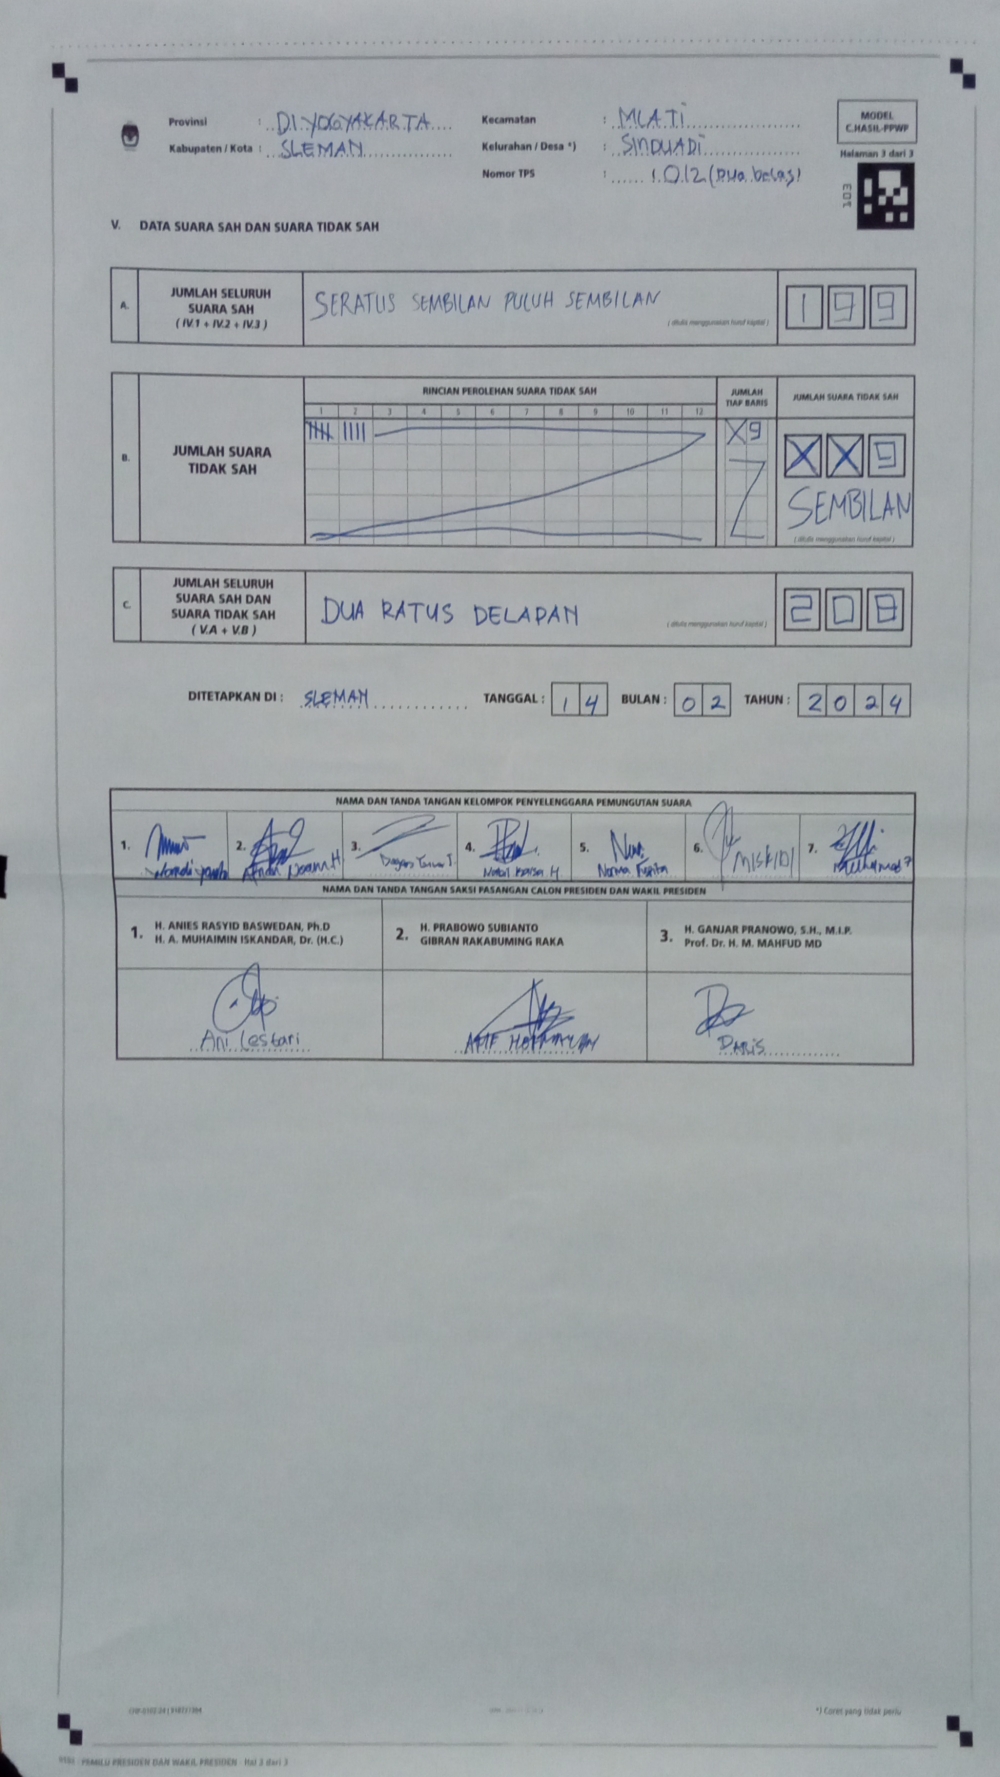 Provinsi : DI YOGYAKARTA
Kabupaten / Kota : SLEMAN
Kecamatan : MLATI
Kelurahan / Desa *) : SINDUADI
Nomor TPS : 012 (Dua belas)
MODEL
C.HASIL-PPWP
Halaman 3 dari 3
103
V. DATA SUARA SAH DAN SUARA TIDAK SAH
A. JUMLAH SELURUH
SUARA SAH
( IV.1 + IV.2 + IV.3 )
SERATUS SEMBILAN PULUH SEMBILAN
( ditulis menggunakan huruf kapital )
1 9 9
B. JUMLAH SUARA
TIDAK SAH
RINCIAN PEROLEHAN SUARA TIDAK SAH
1 2 3 4 5 6 7 8 9 10 11 12
JUMLAH
TIAP BARIS
X9
JUMLAH SUARA TIDAK SAH
X X 9
SEMBILAN
( ditulis menggunakan huruf kapital )
C. JUMLAH SELURUH
SUARA SAH DAN
SUARA TIDAK SAH
( V.A + V.B )
DUA RATUS DELAPAN
( ditulis menggunakan huruf kapital )
2 0 8
DITETAPKAN DI : SLEMAN TANGGAL : 1 4 BULAN : 0 2 TAHUN : 2 0 2 4
NAMA DAN TANDA TANGAN KELOMPOK PENYELENGGARA PEMUNGUTAN SUARA
1. 2. 3. 4. 5. 6. 7.
Norma
NAMA DAN TANDA TANGAN SAKSI PASANGAN CALON PRESIDEN DAN WAKIL PRESIDEN
1. H. ANIES RASYID BASWEDAN, Ph.D
H. A. MUHAIMIN ISKANDAR, Dr. (H.C.)
2. H. PRABOWO SUBIANTO
GIBRAN RAKABUMING RAKA
3. H. GANJAR PRANOWO, S.H., M.I.P.
Prof. Dr. H. M. MAHFUD MD
Ani Lestari
DARIS
*) Coret yang tidak perlu
PEMILU PRESIDEN DAN WAKIL PRESIDEN Hal 3 dari 3